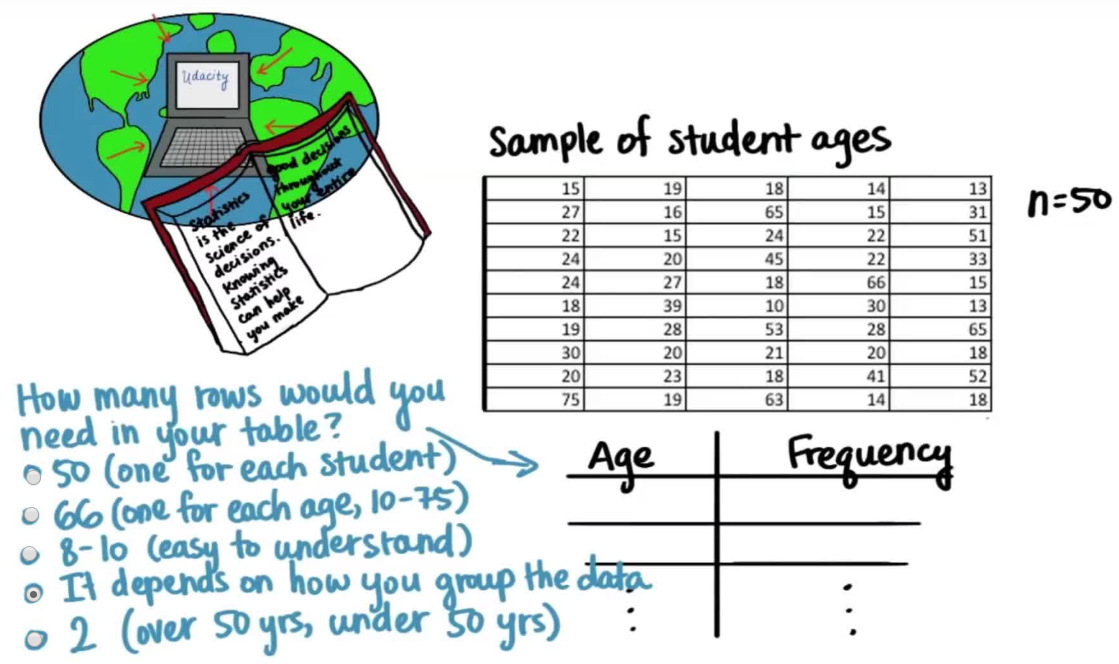 Udacity
Statistics
is the
science of
decisions.
Knowing
statistics
can help
you make
good decisions
throughout
your entire
life.
Sample of student ages
n=50
15 19 18 14 13
27 16 65 15 31
22 15 24 22 51
24 20 45 22 33
24 27 18 66 15
18 39 10 30 13
19 28 53 28 65
30 20 21 20 18
20 23 18 41 52
75 19 63 14 18
How many rows would you
need in your table?
50 (one for each student)
66 (one for each age, 10-75)
8-10 (easy to understand)
It depends on how you group the data
2 (over 50 yrs, under 50 yrs)
Age Frequency